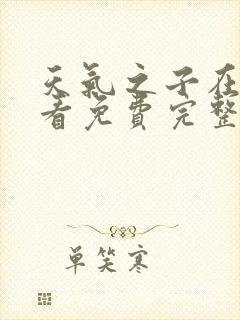 天氣之子在
看免費完整
单笑寒